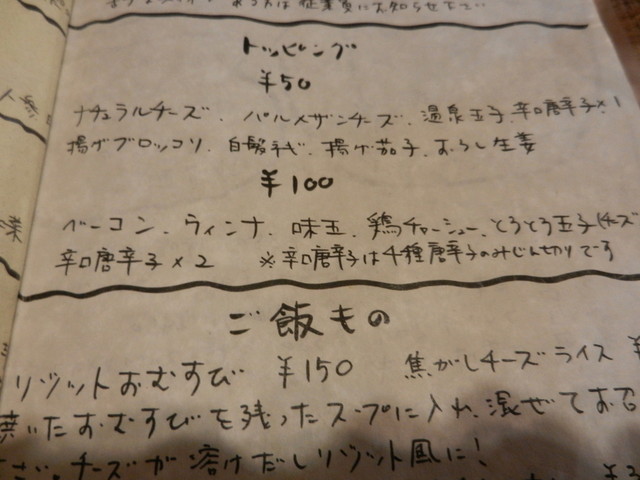 従業員にお知らせ下さい
トッピング
¥50
ナチュラルチーズ、パルメザンチーズ、温泉玉子、辛口唐辛子×1
揚げブロッコリ、白髪ネギ、揚げ茄子、おろし生姜
¥100
ベーコン、ウィンナ、味玉、鶏チャーシュー、とろとろ玉子(チーズ
辛口唐辛子×2 ※辛口唐辛子は4種唐辛子のみじん切りです
ご飯もの
リゾットおむすび ¥150 焦がしチーズライス ¥
焼いたおむすびを残ったスープに入れ、混ぜてお召
チーズが溶けだしリゾット風に!